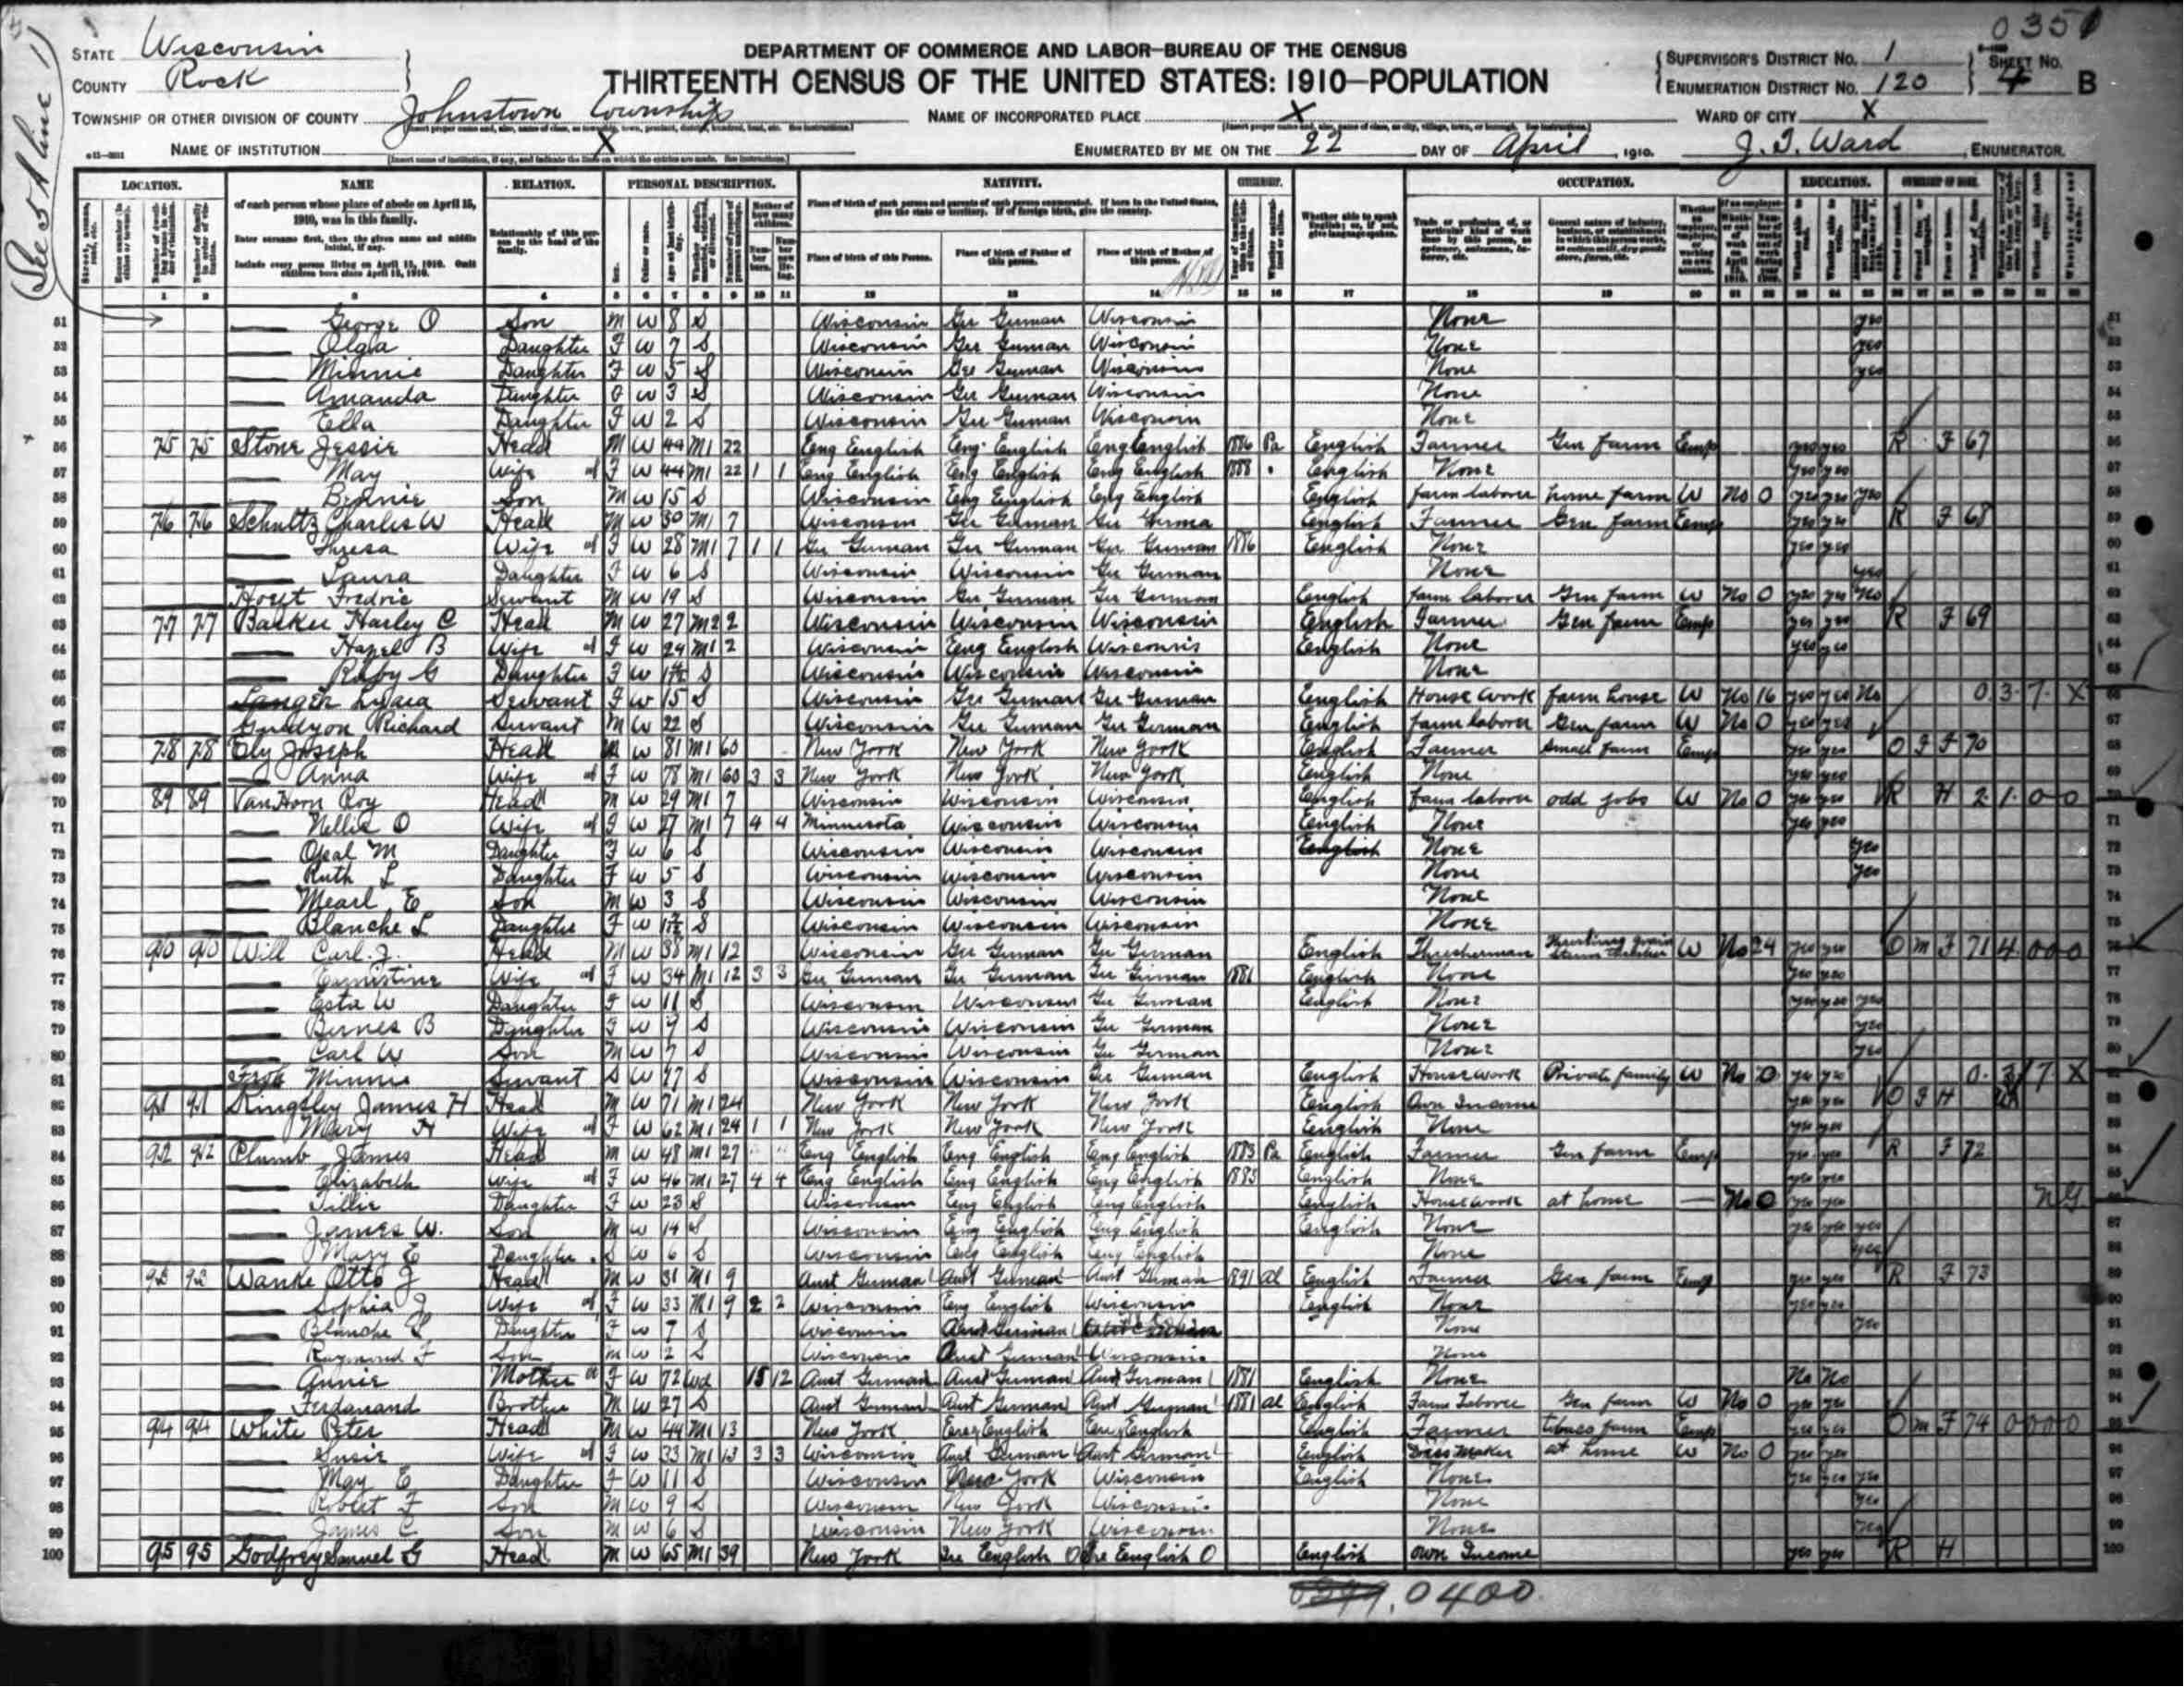 0351
STATE Wisconsin
COUNTY Rock
DEPARTMENT OF COMMERCE AND LABOR—BUREAU OF THE CENSUS
THIRTEENTH CENSUS OF THE UNITED STATES: 1910—POPULATION
SUPERVISOR'S DISTRICT No. 1
ENUMERATION DISTRICT No. 120
SHEET No. 4 B
TOWNSHIP OR OTHER DIVISION OF COUNTY Johnstown Township
NAME OF INCORPORATED PLACE X
WARD OF CITY X
NAME OF INSTITUTION X
ENUMERATED BY ME ON THE 22 DAY OF April, 1910. J. T. Ward, ENUMERATOR.
(See line 1)
LOCATION. NAME RELATION. PERSONAL DESCRIPTION. NATIVITY. CITIZENSHIP. OCCUPATION. EDUCATION. OWNERSHIP OF HOME.
of each person whose place of abode on April 15, 1910, was in this family.
Enter surname first, then the given name and middle initial, if any.
Include every person living on April 15, 1910. Omit children born since April 15, 1910.
Relationship of this person to the head of the family.
Place of birth of this Person. Place of birth of Father of this person. Place of birth of Mother of this person.
51 George O Son M W 8 S Wisconsin Ger German Wisconsin None yes
52 Olga Daughter F W 7 S Wisconsin Ger German Wisconsin None yes
53 Minnie Daughter F W 5 S Wisconsin Ger German Wisconsin None yes
54 Amanda Daughter W 3 S Wisconsin Ger German Wisconsin None
55 Ella Daughter F W 2 S Wisconsin Ger German Wisconsin None
56 75 75 Stone Jessie Head M W 44 M1 22 Eng English Eng English Eng English 1886 Pa English Farmer Gen farm Emp yes yes R F 67
57 May Wife F W 44 M1 22 1 1 Eng English Eng English Eng English 1888 English None yes yes
58 Bennie Son M W 15 S Wisconsin Eng English Eng English English farm laborer home farm W No 0 yes yes yes
59 76 76 Schultz Charles W Head M W 30 M1 7 Wisconsin Ger German Ger Germa English Farmer Gen farm Emp yes yes R F 68
60 Thresa Wife F W 28 M1 7 1 1 Ger German Ger German Ger German 1886 English None yes yes
61 Laura Daughter F W 6 S Wisconsin Wisconsin Ger German None yes
62 Fredric Servant M W 19 S Wisconsin Ger German Ger German English farm laborer Gen farm W No 0 yes yes No
63 77 77 Barker Harley C Head M W 27 M2 2 Wisconsin Wisconsin Wisconsin English Farmer Gen farm Emp yes yes R F 69
64 Hazel B Wife F W 24 M1 2 Wisconsin Eng English Wisconsin English None yes yes
65 Ruby G Daughter F W S Wisconsin Wisconsin Wisconsin None
66 Langer Lydia Servant F W 15 S Wisconsin Ger German Ger German English House work farm house W No 16 yes yes No 0 3 7 X
67 Richard Servant M W 22 S Wisconsin Ger German Ger German English farm laborer Gen farm W No 0 yes yes
68 78 78 Ely Joseph Head M W 81 M1 60 New York New York New York English Farmer Small farm Emp yes yes O F F 70
69 Anna Wife F W 78 M1 60 3 3 New York New York New York English None yes yes
70 89 89 VanHorn Roy Head M W 29 M1 7 Wisconsin Wisconsin Wisconsin English farm laborer odd jobs W No 0 yes yes R H 2 1 0 0
71 Nellie O Wife F W 27 M1 7 4 4 Minnesota Wisconsin Wisconsin English None yes yes
72 Opal M Daughter F W 6 S Wisconsin Wisconsin Wisconsin English None yes
73 Ruth L Daughter F W 5 S Wisconsin Wisconsin Wisconsin None yes
74 Mearl E Son M W 3 S Wisconsin Wisconsin Wisconsin None
75 Blanche L Daughter F W S Wisconsin Wisconsin Wisconsin None
76 90 90 Will Carl J. Head M W 38 M1 12 Wisconsin Ger German Ger German English Thresherman W No 24 yes yes O M F 71 4 0 0 0
77 Ernistine Wife F W 34 M1 12 3 3 Ger German Ger German Ger German 1881 English None yes yes
78 Esta W Daughter F W 11 S Wisconsin Wisconsin Ger German English None yes yes yes
79 Bernes B Daughter F W 9 S Wisconsin Wisconsin Ger German None yes
80 Carl W Son M W 7 S Wisconsin Wisconsin Ger German None yes
81 Minnie Servant W 17 S Wisconsin Wisconsin Ger German English Housework Private family W No 0 yes yes 0 3 7 X
82 91 91 Kingsley James H Head M W 71 M1 24 New York New York New York English Own Income yes yes O F H
83 Mary H Wife F W 62 M1 24 1 1 New York New York New York English None yes yes
84 92 92 Plumb James Head M W 48 M1 27 Eng English Eng English Eng English 1883 Pa English Farmer Gen farm Emp yes yes R F 72
85 Elizabeth Wife F W 46 M1 27 4 4 Eng English Eng English Eng English 1885 English None yes yes
86 Tillie Daughter F W 23 S Wisconsin Eng English Eng English English Housework at home — No 0 yes yes N.G.
87 James W. Son M W 14 S Wisconsin Eng English Eng English English None yes yes yes
88 Mary E Daughter W 6 S Wisconsin Eng English Eng English None yes
89 93 93 Wanke Otto J Head M W 31 M1 9 Aust German Aust German Aust German 1891 al English Farmer Gen farm Emp yes yes R F 73
90 Sophia J Wife F W 33 M1 9 2 2 Wisconsin Eng English Wisconsin English None yes yes
91 Blanche Daughter F W 7 S Wisconsin Aust German None yes
92 Raymond F Son M W 2 S Wisconsin Aust German Wisconsin None
93 Annie Mother F W 72 Wd 15 12 Aust German Aust German Aust German 1881 English None No No
94 Ferdanand Brother M W 27 S Aust German Aust German Aust German 1881 al English Farm Laborer Gen farm W No 0 yes yes
95 94 94 White Peter Head M W 44 M1 13 New York Eng English Eng English English Farmer tobaco farm Emp yes yes O M F 74 0 0 0 0
96 Susie Wife F W 33 M1 13 3 3 Wisconsin Aust German Aust German English Dress Maker at home W No 0 yes yes
97 May E Daughter F W 11 S Wisconsin New York Wisconsin English None yes yes yes
98 Robert F Son M W 9 S Wisconsin New York Wisconsin None yes
99 James C Son M W 6 S Wisconsin New York Wisconsin None yes
100 95 95 Godfrey Samuel G Head M W 65 M1 39 New York Ire English O Ire English O English own Income yes yes R H
0400